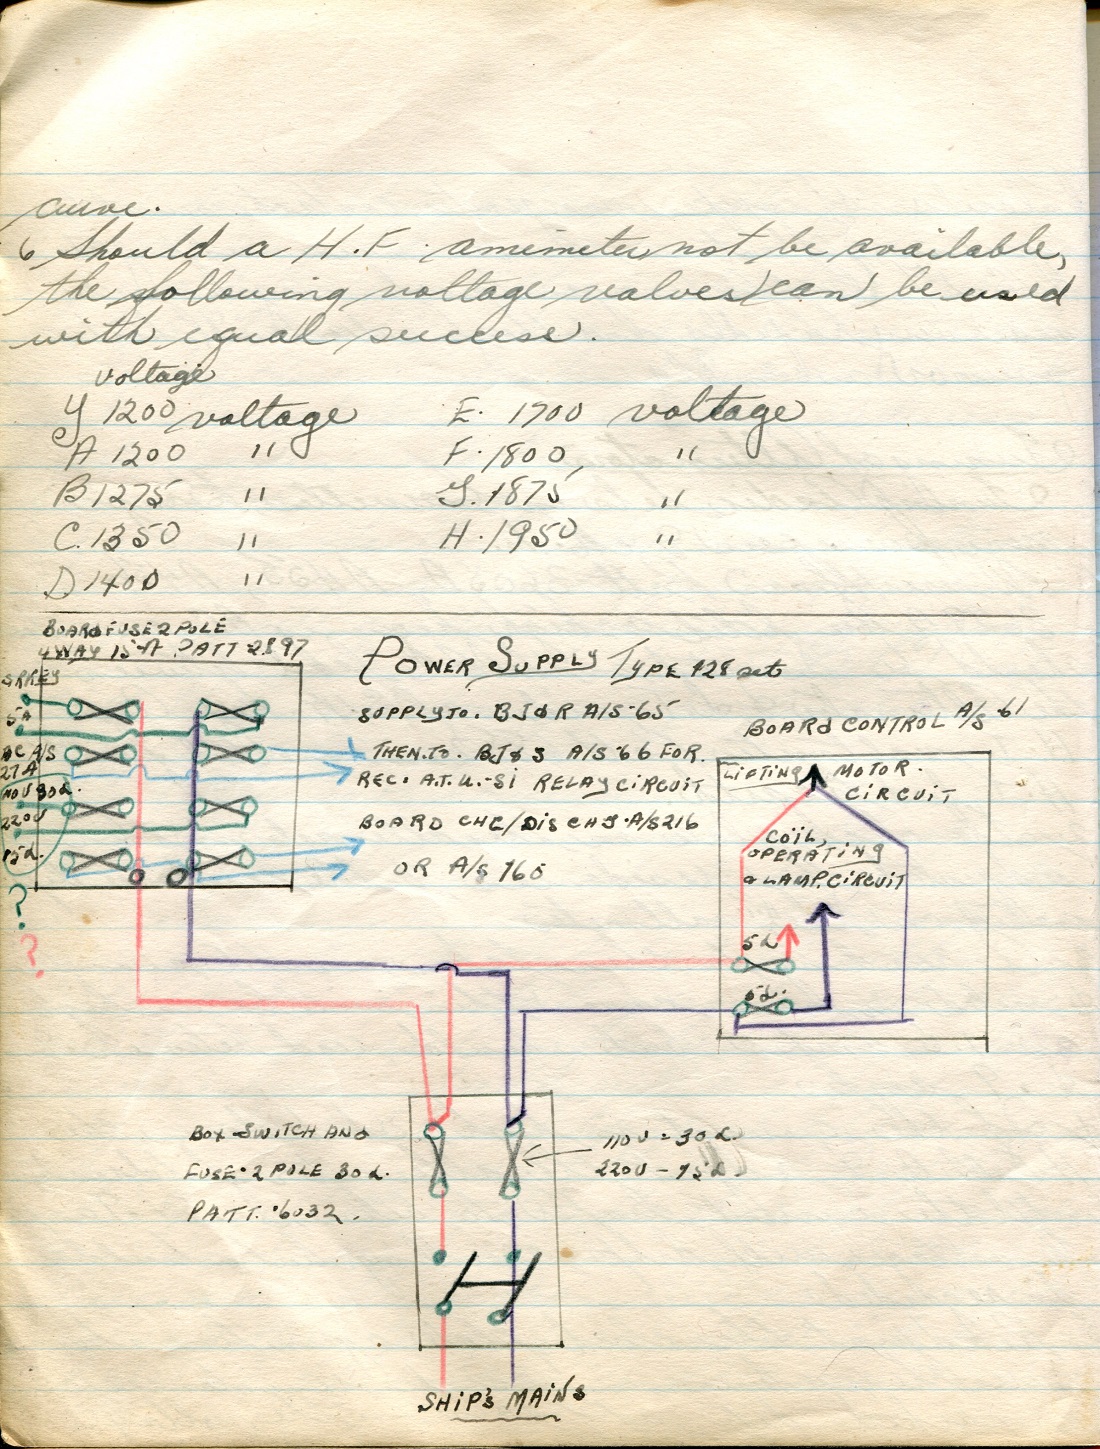 curve.
6 Should a H.F. amimeter not be available,
the following voltage valves (can) be used
with equal success.
voltage
Y 1200 voltage E. 1700 voltage
A 1200 " F. 1800 "
B 1275 " G. 1875 "
C. 1350 " H. 1950 "
D 1400 "
BOARD FUSE 2 POLE
4 WAY 15 A PATT 2897
POWER SUPPLY TYPE 128 set
SUPPLY TO. BJ & R A/S-65
THEN.TO. BJ & S A/S 66 FOR.
REC. A.T.U.-SI RELAY CIRCUIT
BOARD CHE/DISCHG. A/S 216
OR A/S 160
5A
DC A/S
27A
110V 30A.
220V
15A.
?
?
BOARD CONTROL A/S 61
LIFTING MOTOR.
CIRCUIT
COIL,
OPERATING
& LAMP. CIRCUIT
5A
5A.
BOX SWITCH AND
FUSE. 2 POLE 30A.
PATT. 6032.
110V = 30A.
220V - 15A.
SHIP'S MAINS